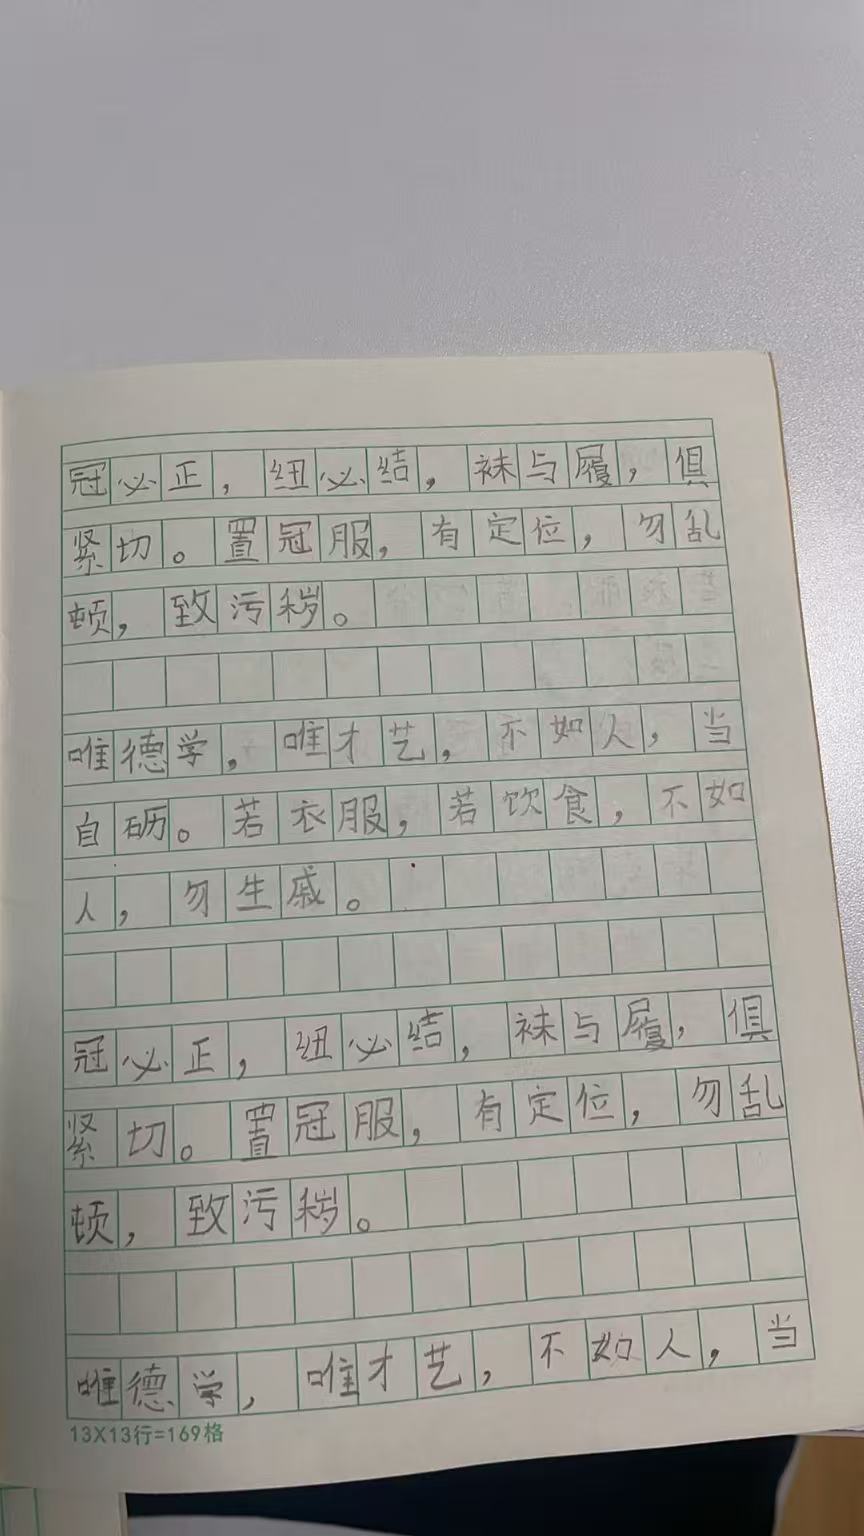 冠必正，纽必结，袜与履，俱
紧切。置冠服，有定位，勿乱
顿，致污秽。
唯德学，唯才艺，不如人，当
自砺。若衣服，若饮食，不如
人，勿生戚。
冠必正，纽必结，袜与履，俱
紧切。置冠服，有定位，勿乱
顿，致污秽。
唯德学，唯才艺，不如人，当
13X13行=169格